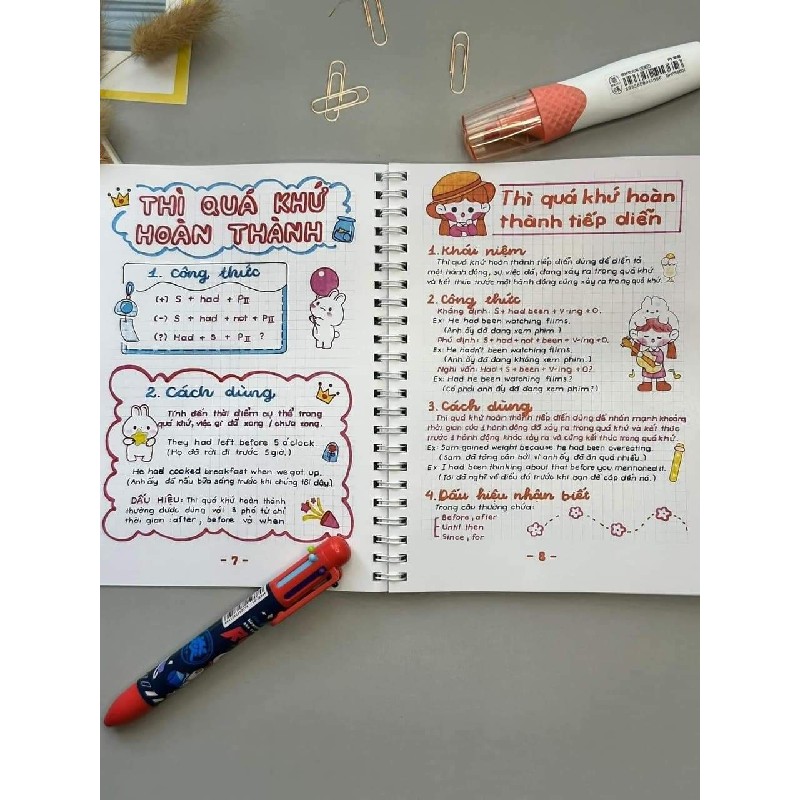 THÌ QUÁ KHỨ
HOÀN THÀNH
1. Công thức
(+) S + had + PII
(-) S + had + not + PII
(?) Had + S + PII ?
2. Cách dùng
Tính đến thời điểm cụ thể trong
quá khứ, việc gì đã xong / chưa xong.
They had left before 5 o'clock.
(Họ đã rời đi trước 5 giờ.)
He had cooked breakfast when we got up.
(Anh ấy đã nấu bữa sáng trước khi chúng tôi dậy)
DẤU HIỆU: Thì quá khứ hoàn thành
thường được dùng với 3 phó từ chỉ
thời gian: after, before và when
- 7 -
Thì quá khứ hoàn
thành tiếp diễn
1. Khái niệm
Thì quá khứ hoàn thành tiếp diễn dùng để diễn tả
một hành động, sự việc đã, đang xảy ra trong quá khứ
và kết thúc trước một hành động cũng xảy ra trong quá khứ.
2. Công thức
Khẳng định: S + had been + V-ing + O.
Ex: He had been watching films.
(Anh ấy đã đang xem phim.)
Phủ định: S + had + not + been + V-ing + O.
Ex: He hadn't been watching films.
(Anh ấy đã đang không xem phim.)
Nghi vấn: Had + S + been + V-ing + O?
Ex: Had he been watching films?
(Có phải anh ấy đã đang xem phim?)
3. Cách dùng
Thì quá khứ hoàn thành tiếp diễn dùng để nhấn mạnh khoảng
thời gian của 1 hành động đã xảy ra trong quá khứ và kết thúc
trước 1 hành động khác xảy ra và cũng kết thúc trong quá khứ.
Ex: Sam gained weight because he had been overeating.
(Sam đã tăng cân bởi vì anh ấy đã ăn quá nhiều.)
Ex: I had been thinking about that before you mentioned it.
(Tôi đã nghĩ về điều đó trước khi bạn đề cập đến nó.)
4. Dấu hiệu nhận biết
Trong câu thường chứa:
Before, after
Until then
Since, for
- 8 -